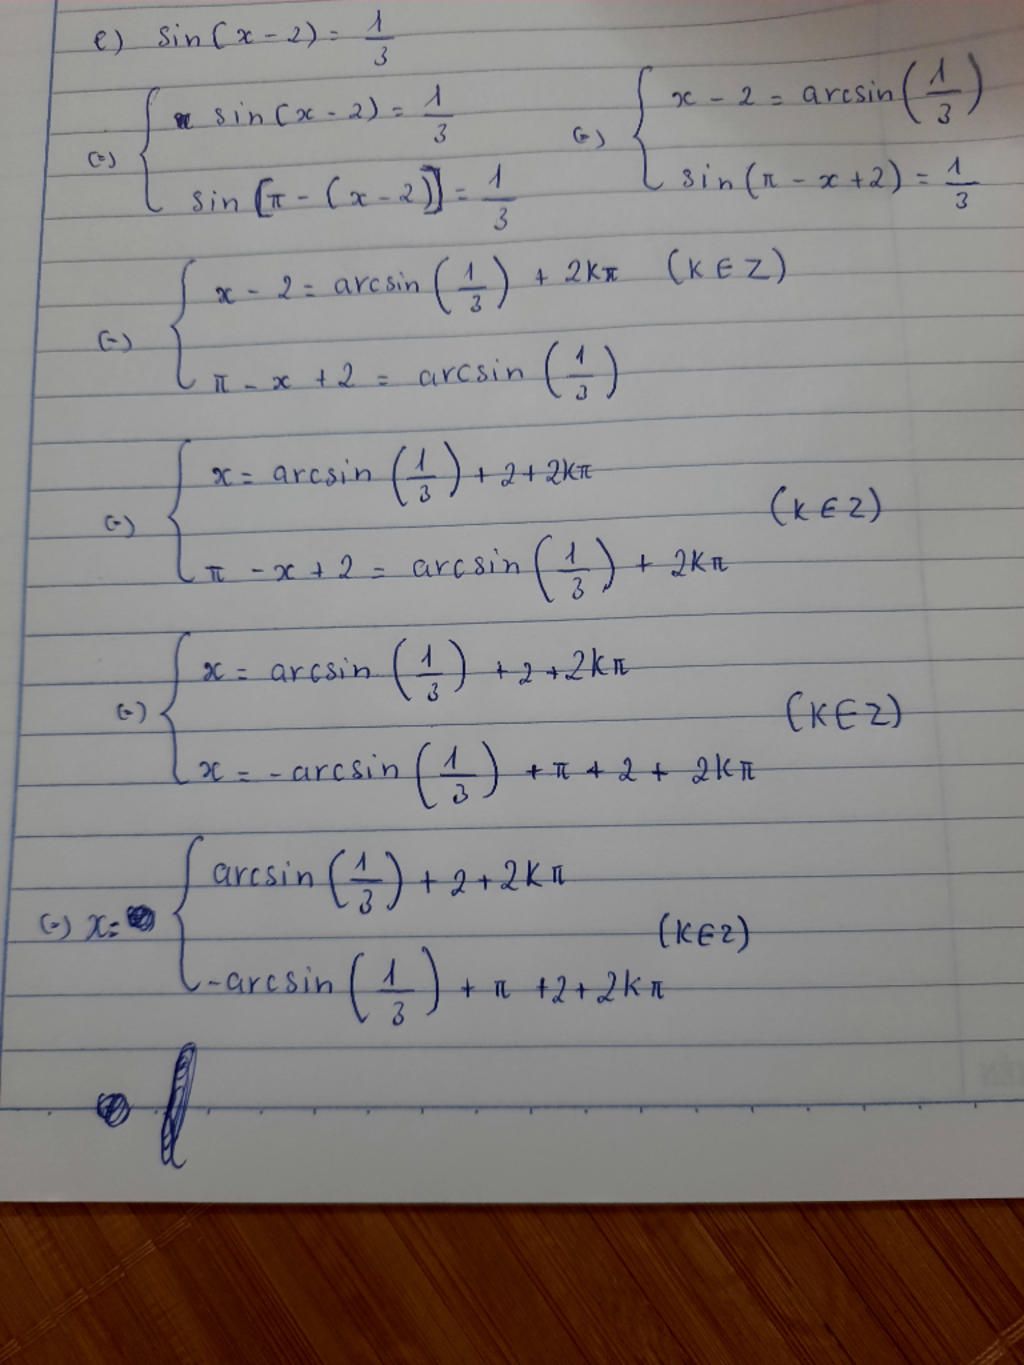 e) sin(x - 2) = 1/3
(=) { sin(x - 2) = 1/3
sin[π - (x - 2)] = 1/3
(=) { x - 2 = arcsin(1/3)
sin(π - x + 2) = 1/3
(=) { x - 2 = arcsin(1/3) + 2kπ (K ∈ Z)
π - x + 2 = arcsin(1/3)
(=) { x = arcsin(1/3) + 2 + 2kπ
π - x + 2 = arcsin(1/3) + 2kπ (K ∈ Z)
(=) { x = arcsin(1/3) + 2 + 2kπ
x = -arcsin(1/3) + π + 2 + 2kπ (K ∈ Z)
(=) x = { arcsin(1/3) + 2 + 2kπ
-arcsin(1/3) + π + 2 + 2kπ (K ∈ Z)